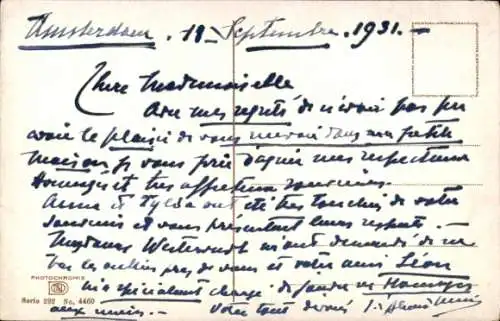 Amsterdam, 11 Septembre, 1931. —
Chere Mademoiselle
Avec mes regrets de n'avoir pas pu
avoir le plaisir de vous revoir dans ma petite
maison je vous prie d'agréer mes respectueux
Hommages et tres affectueux souvenirs.
Anna et ont été tres touchés de votre
souvenir et vous présentent leurs respects. —
m'ont demandé de ne
pas les oublier pres de vous et votre ami Léon
m'a spécialement chargé de joindre ses Hommages
aux miens. — Votre tout devoué
PHOTOCHROMIE
Serie 292 No. 4460